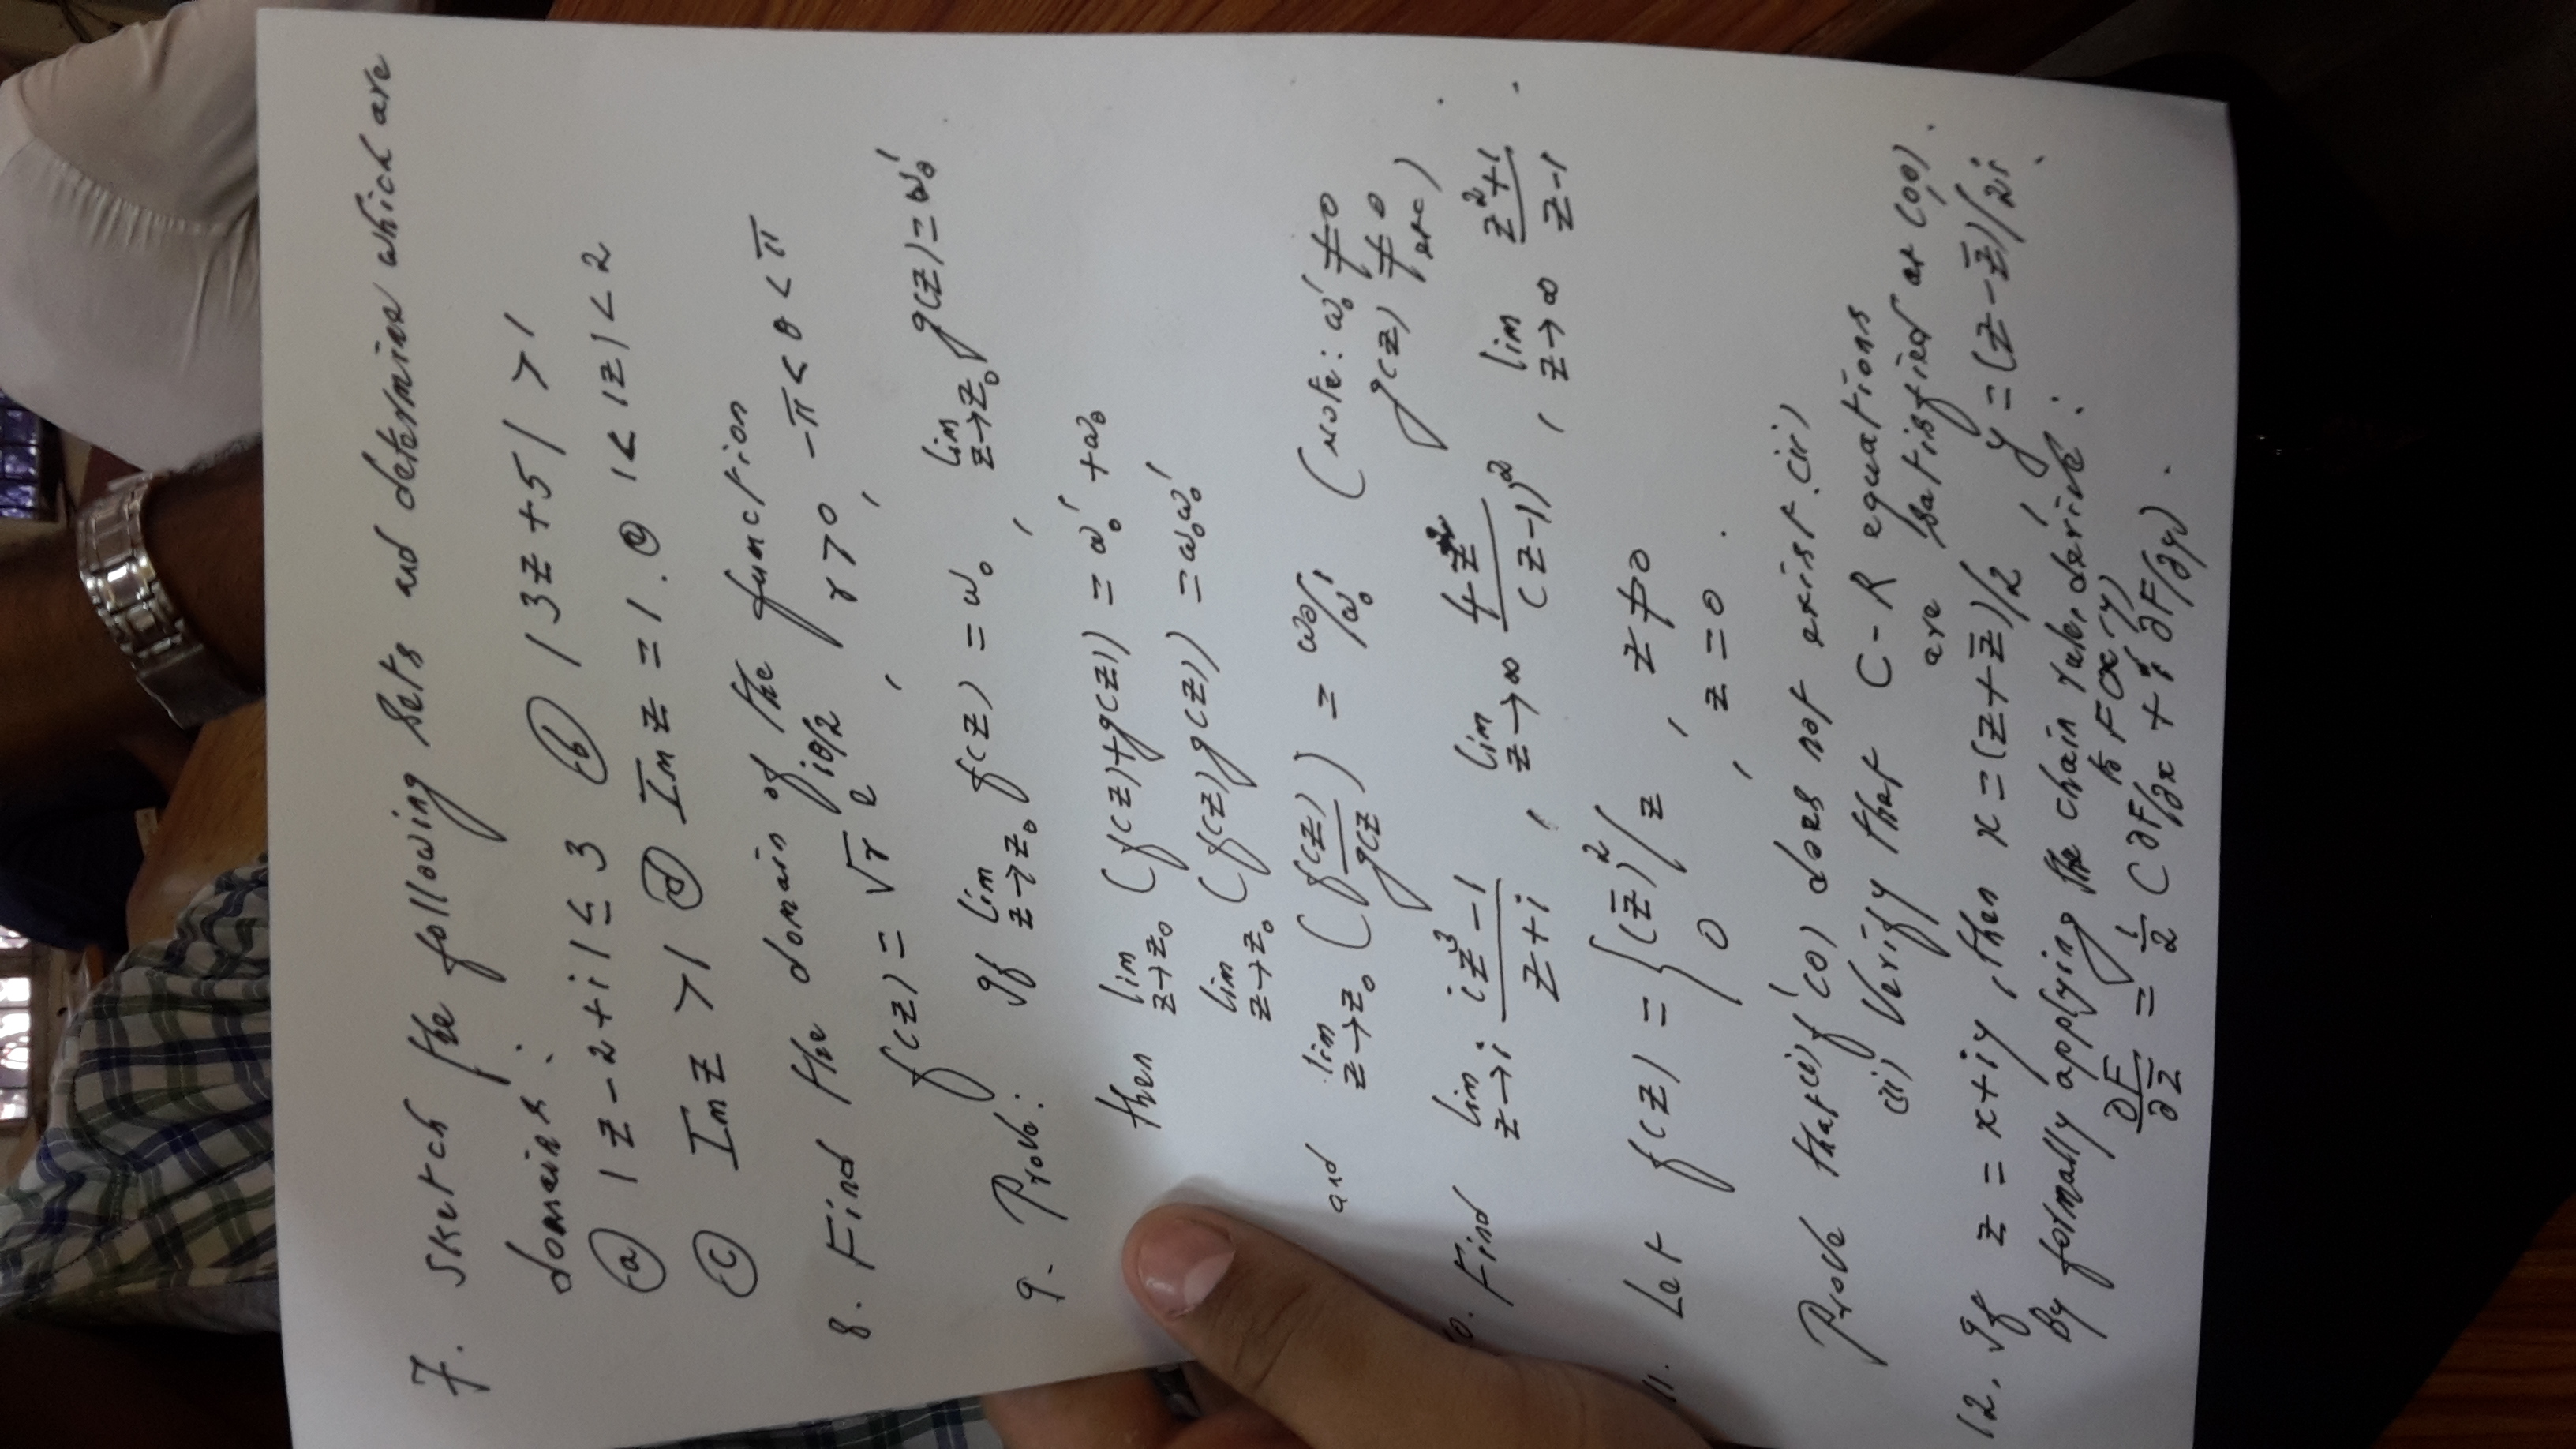 7. Sketch the following sets and determine which are
domains:
(a) |z-2+i| ≤ 3 (b) |3z+5| > 1
(c) Im z > 1 (d) Im z = 1. (e) 1 < |z| < 2
8. Find the domain of the function
f(z) = √r e^{iθ/2}, r > 0, -π < θ < π
9. Prove: If lim_{z→z₀} f(z) = ω₀, lim_{z→z₀} g(z) = ω₀'
then lim_{z→z₀} (f(z)+g(z)) = ω₀' + ω₀
lim_{z→z₀} (f(z)g(z)) = ω₀ω₀'
and lim_{z→z₀} (f(z)/g(z) = ω₀/ω₀' (Note: ω₀' ≠ 0
g(z) ≠ 0
etc)
0. Find lim_{z→i} (iz³-1)/(z+i), lim_{z→∞} 4z²/(z-1)², lim_{z→∞} (z²+1)/(z-1).
11. Let f(z) = { (z̄)²/z, z ≠ 0
0, z = 0.
Prove that (i) f'(0) does not exist. (ii)
(ii) Verify that C-R equations
are satisfied at (0,0).
12. If z = x+iy, then x = (z+z̄)/2, y = (z-z̄)/2i.
By formally applying the chain rule, derive:
to F(x,y)
∂F/∂z̄ = 1/2 (∂F/∂x + i ∂F/∂y).